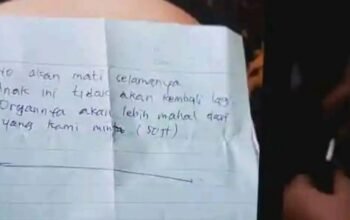 akan mati selamanya
anak ini tidak akan kembali lag
Organnya akan lebih mahal dari
yang kami minta (50jt)